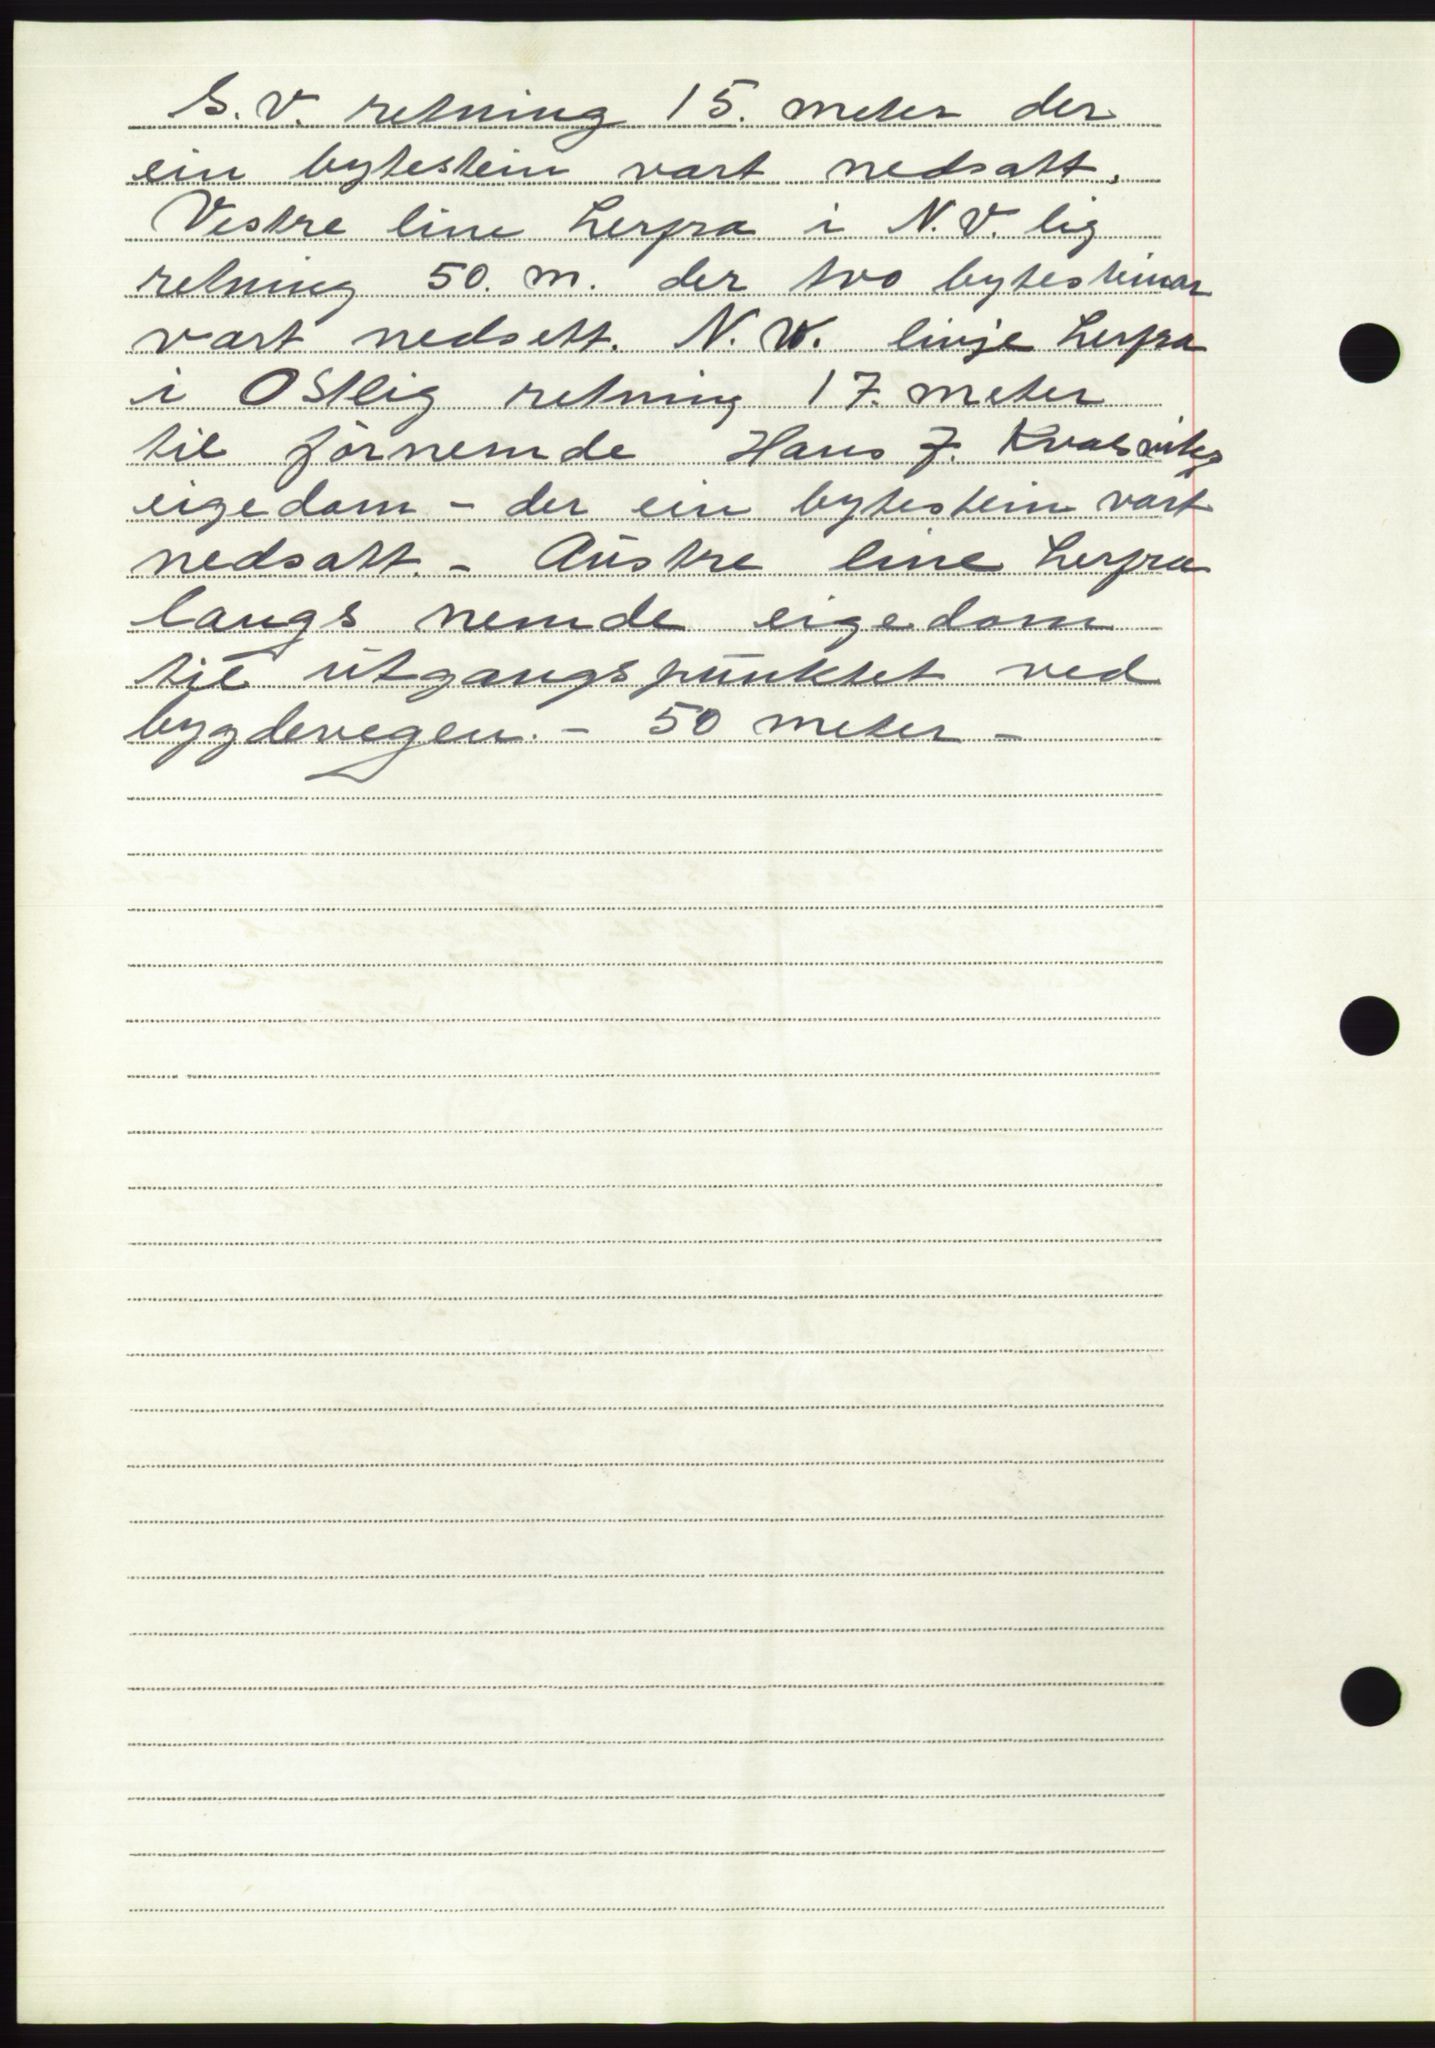 S.V. retning 15. meter der
ein bytestein vart nedsatt.
Vestre line herfra i N.V. lig
retning 50. m. der tvo bytesteinar
vart nedsett. N.V. linje herfra
i Ostlig retning 17. meter
til fornemde Hans J. Kvalsviks
eigedom – der ein bytestein vart
nedsatt. – Aŭstre line herfra
langs nemde eigedom
til ŭtgangspŭnktet ved
bygdevegen. – 50 meter –